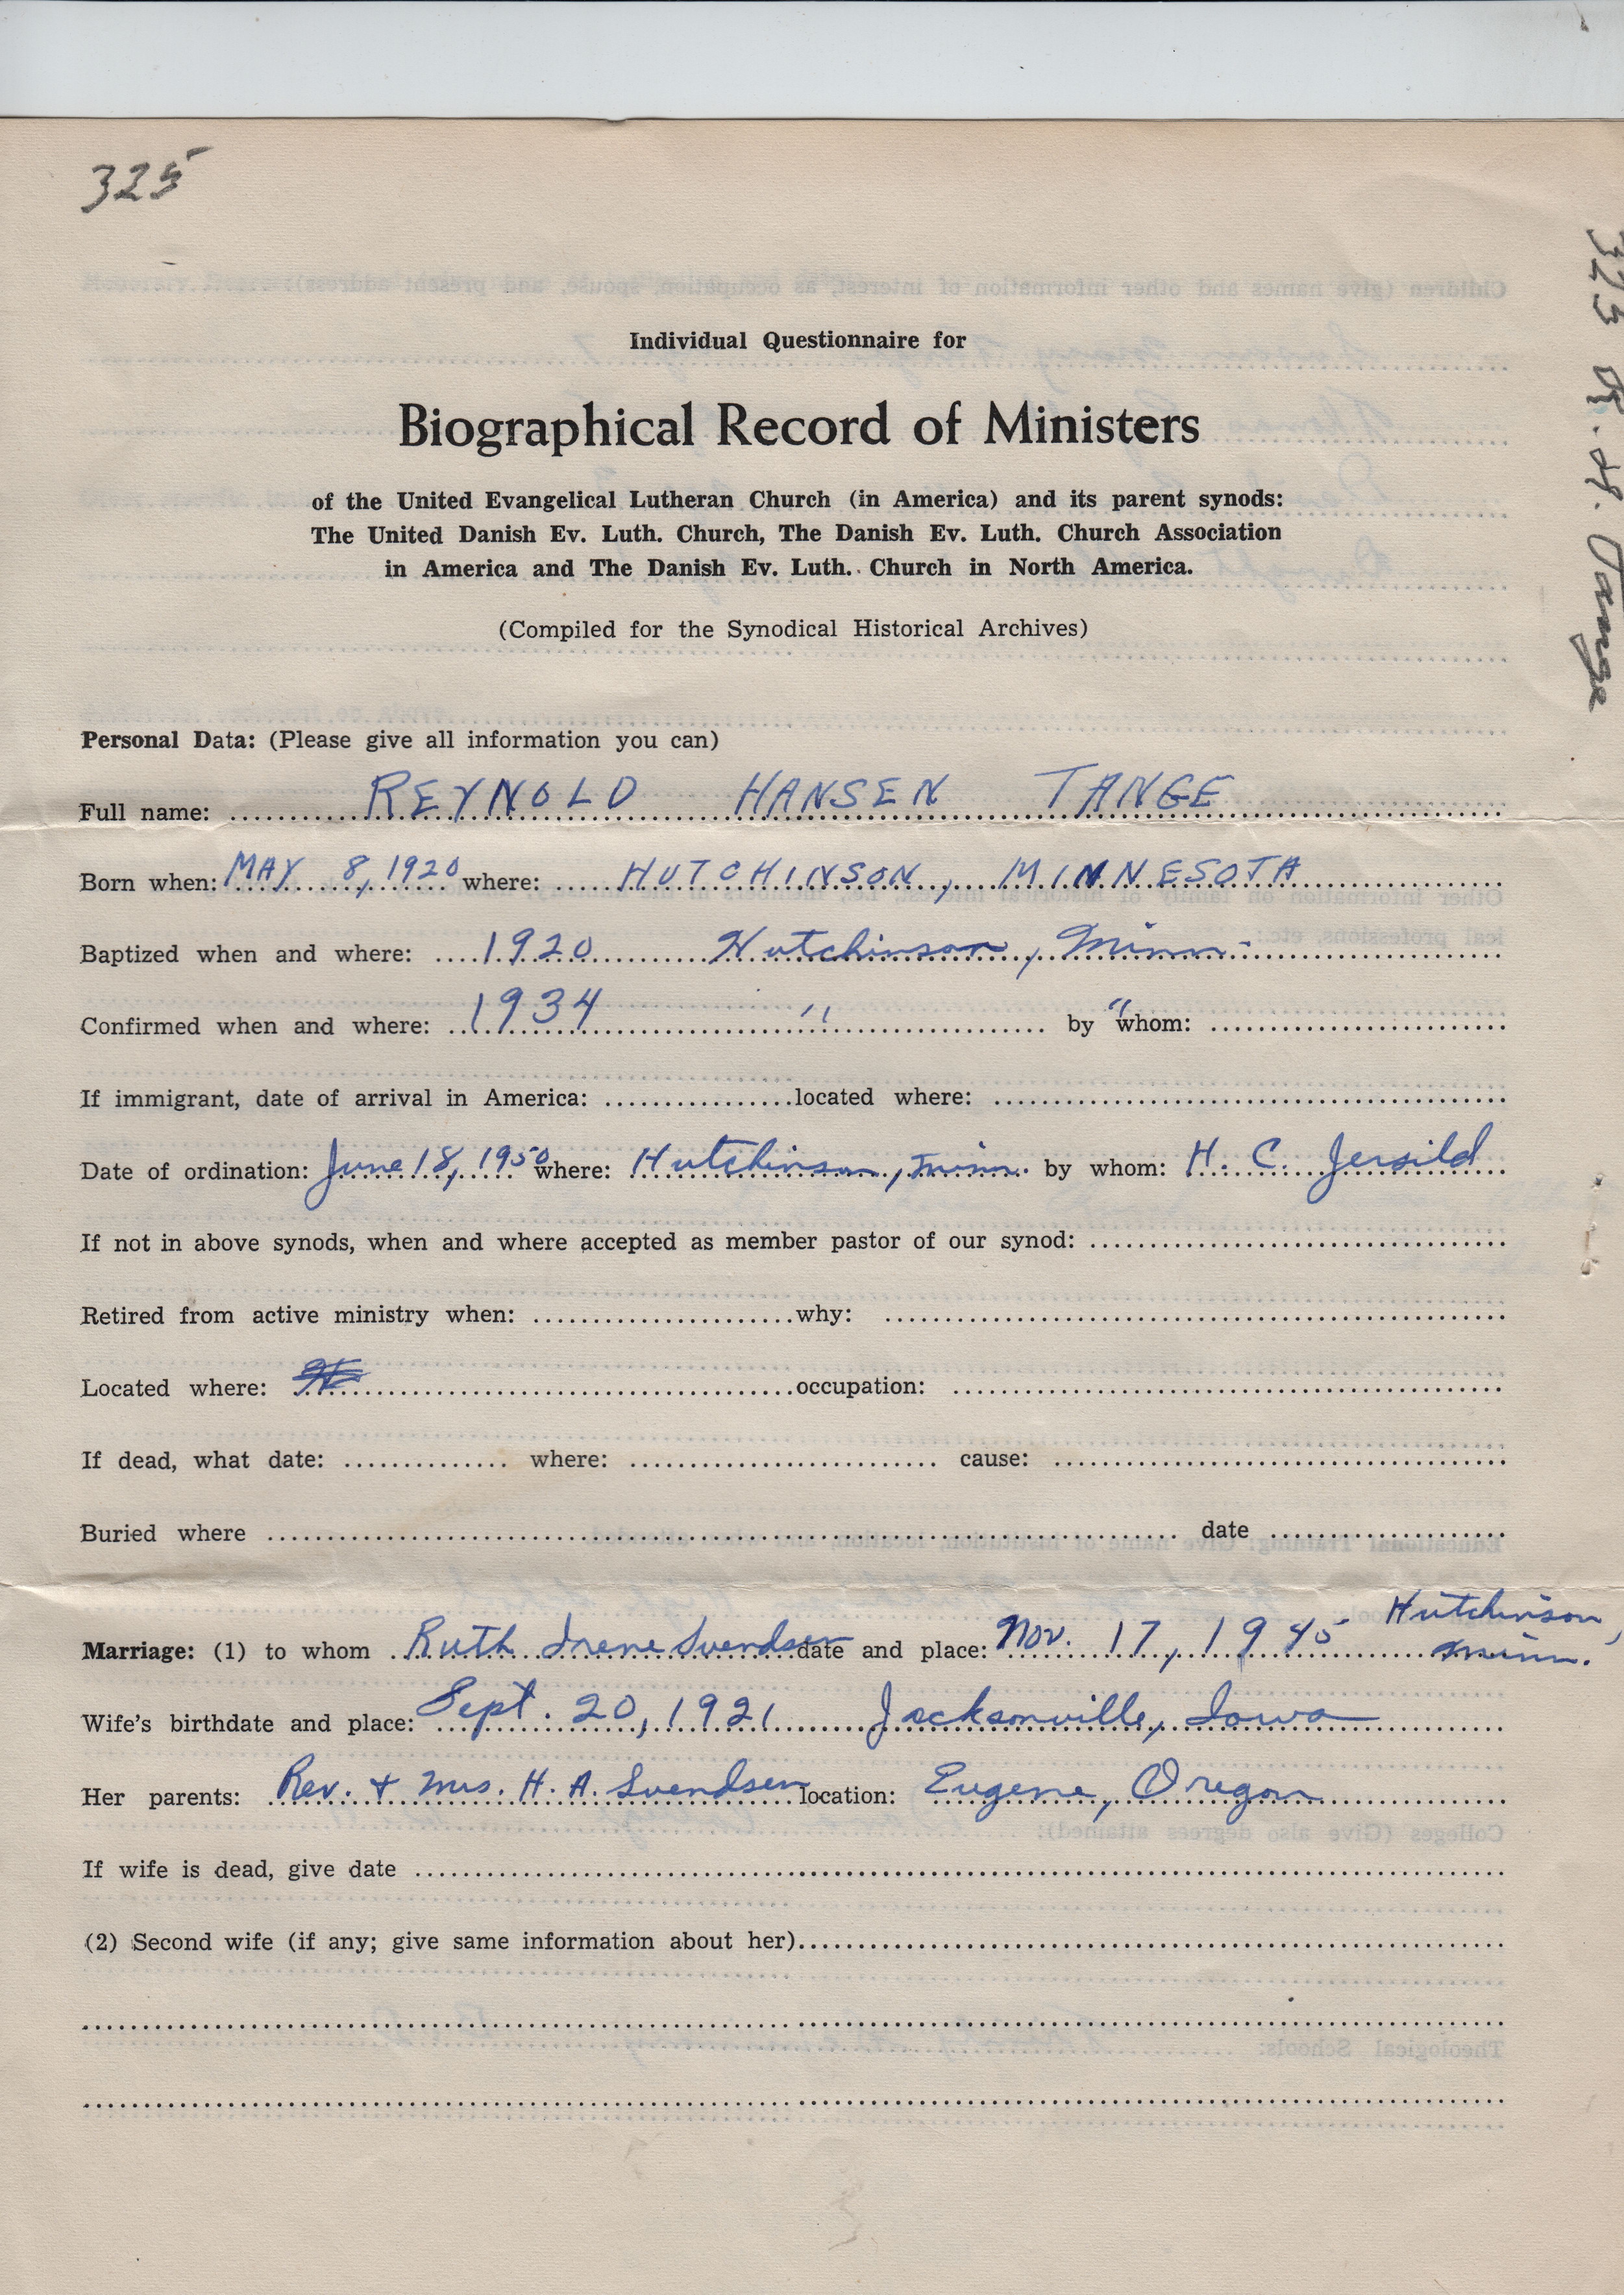 325
325 R. H. Tange
Individual Questionnaire for
Biographical Record of Ministers
of the United Evangelical Lutheran Church (in America) and its parent synods:
The United Danish Ev. Luth. Church, The Danish Ev. Luth. Church Association
in America and The Danish Ev. Luth. Church in North America.
(Compiled for the Synodical Historical Archives)
Personal Data: (Please give all information you can)
Full name: REYNOLD HANSEN TANGE
Born when: MAY 8, 1920 where: HUTCHINSON, MINNESOTA
Baptized when and where: 1920 Hutchinson, Minn.
Confirmed when and where: 1934 " " by whom:
If immigrant, date of arrival in America: located where:
Date of ordination: June 18, 1950 where: Hutchinson, Minn. by whom: H. C. Jersild
If not in above synods, when and where accepted as member pastor of our synod:
Retired from active ministry when: why:
Located where: occupation:
If dead, what date: where: cause:
Buried where date
Marriage: (1) to whom Ruth Irene Svendsen date and place: Nov. 17, 1945 Hutchinson, Minn.
Wife's birthdate and place: Sept. 20, 1921 Jacksonville, Iowa
Her parents: Rev. + Mrs. H. A. Svendsen location: Eugene, Oregon
If wife is dead, give date
(2) Second wife (if any; give same information about her)